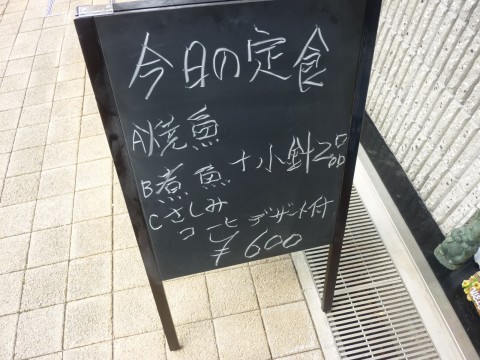 今日の定食
A焼魚
B煮魚 +小鉢200
Cさしみ
デザート付
¥600